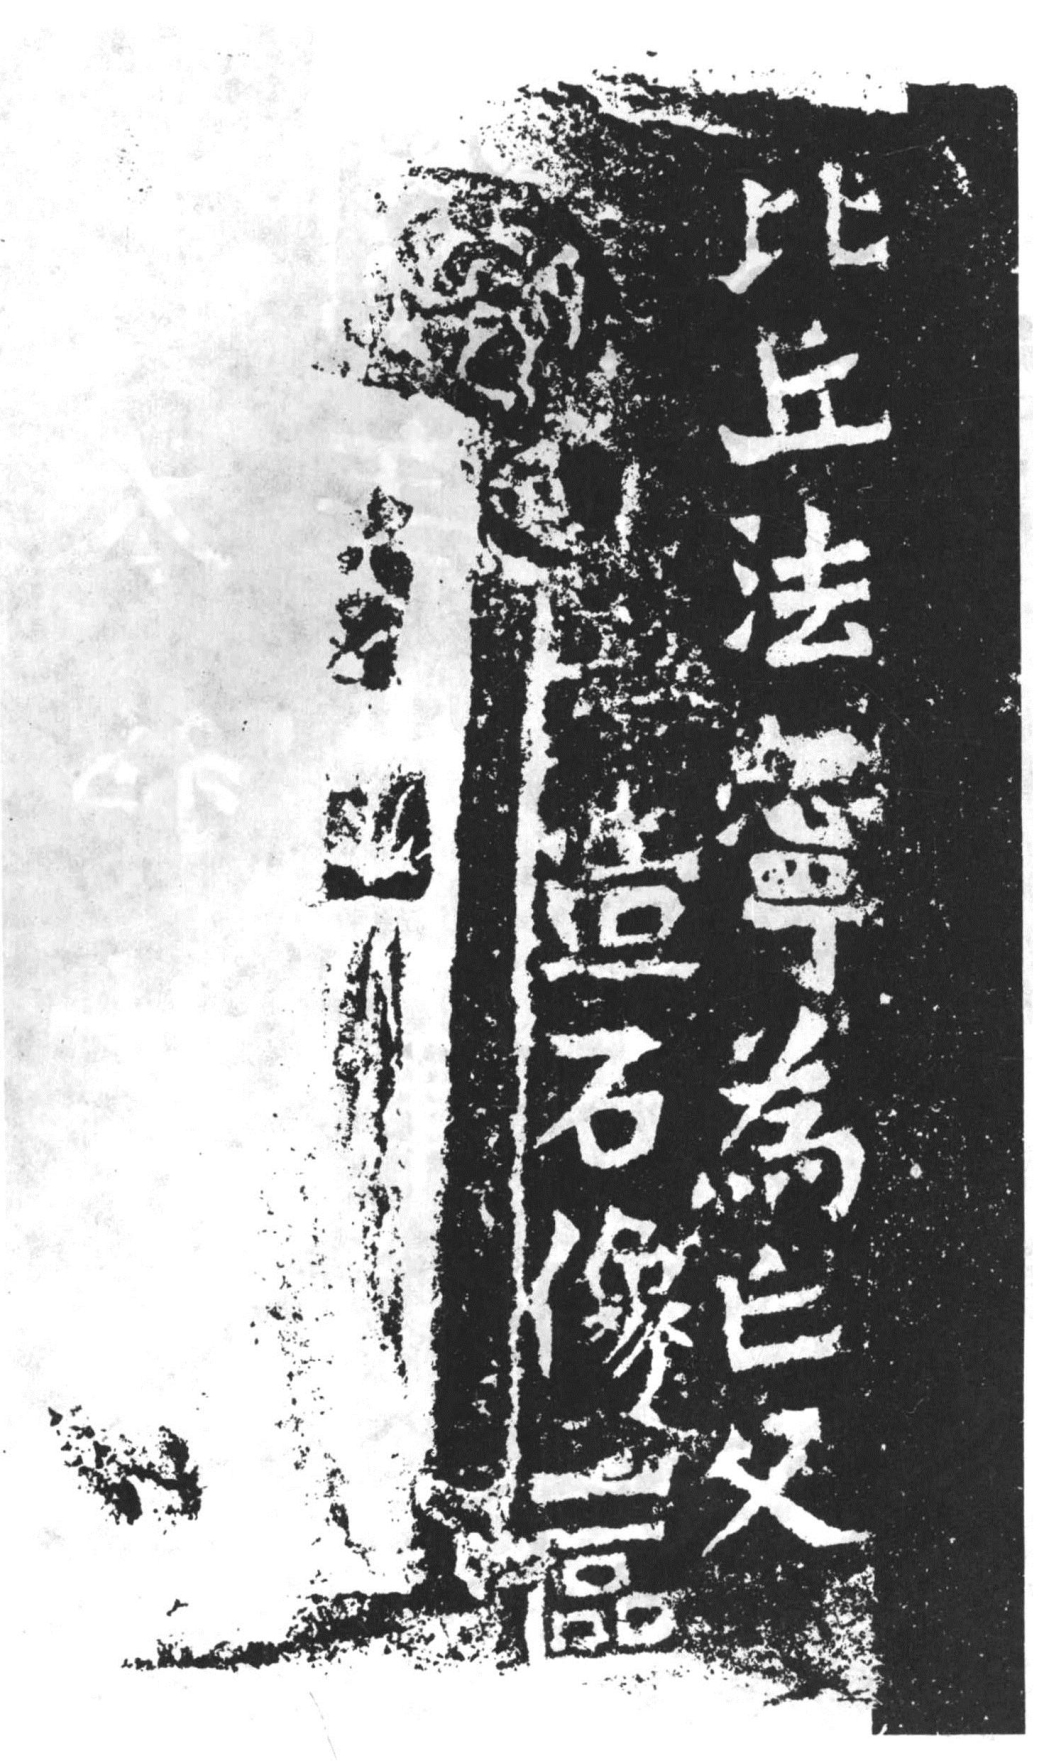 比丘法寧為亡父
造石像一區